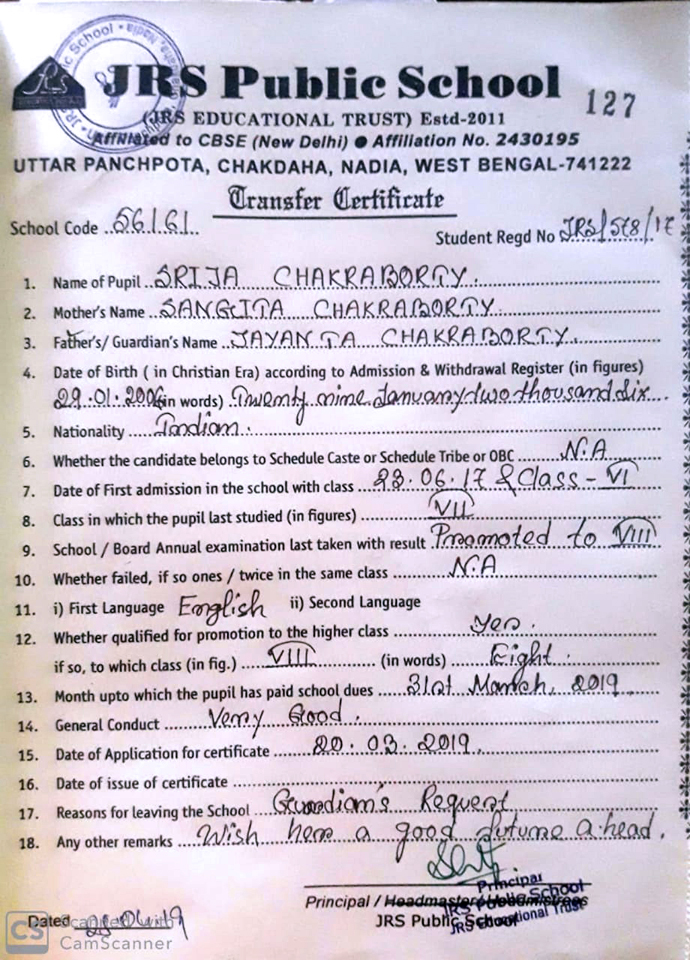 JRS Public School
127
(JRS EDUCATIONAL TRUST) Estd-2011
Affiliated to CBSE (New Delhi) ● Affiliation No. 2430195
UTTAR PANCHPOTA, CHAKDAHA, NADIA, WEST BENGAL-741222
Transfer Certificate
School Code ..56161.
Student Regd No JRS/578/17
1. Name of Pupil ..SRIJA CHAKRABORTY.
2. Mother's Name ..SANGITA CHAKRABORTY.
3. Father's/ Guardian's Name ..JAYANTA CHAKRABORTY.
4. Date of Birth ( in Christian Era) according to Admission & Withdrawal Register (in figures)
29.01.2006 (in words) Twenty nine January two thousand Six
5. Nationality Indian.
6. Whether the candidate belongs to Schedule Caste or Schedule Tribe or OBC N.A
7. Date of First admission in the school with class 23.06.17 & Class - VI
8. Class in which the pupil last studied (in figures) VII
9. School / Board Annual examination last taken with result Promoted to VIII
10. Whether failed, if so ones / twice in the same class N.A
11. i) First Language English ii) Second Language
12. Whether qualified for promotion to the higher class yes.
if so, to which class (in fig.) VIII (in words) Eight.
13. Month upto which the pupil has paid school dues 31st March, 2019
14. General Conduct Very Good.
15. Date of Application for certificate 20.03.2019.
16. Date of issue of certificate
17. Reasons for leaving the School Guardian's Request
18. Any other remarks Wish here a good future a head.
Principal
Principal / Headmaster/Headmistress
JRS Public School
JRS Public School
JRS Educational Trust
Dated
CS Scanned with
CamScanner